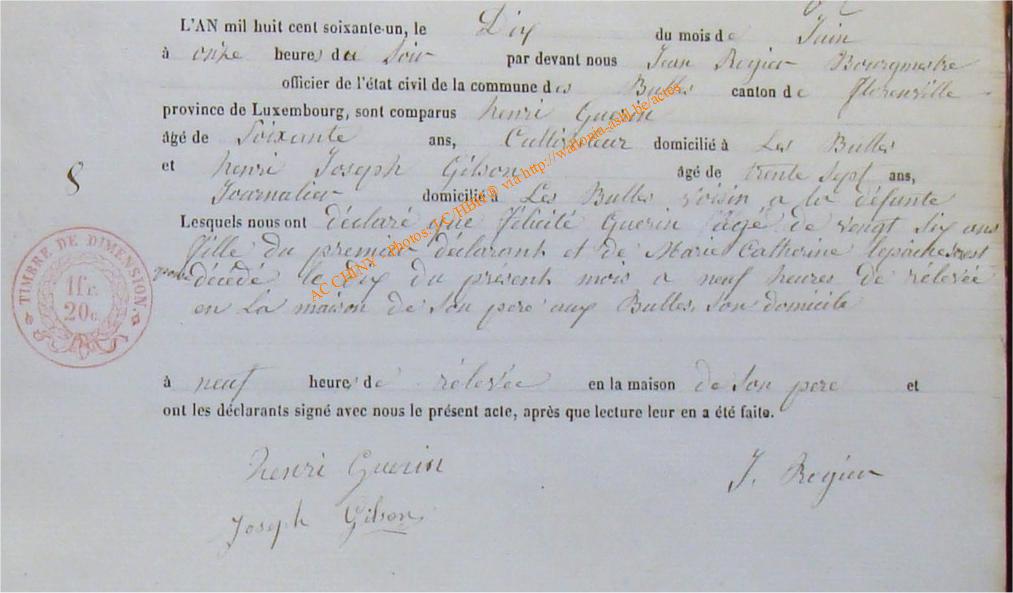 L'AN mil huit cent soixante-un, le Dix du mois de Juin
à onze heures du Soir par devant nous Jean Rogier Bourgmestre
officier de l'état civil de la commune des Bulles canton de Florenville
province de Luxembourg, sont comparus henri Guerin
âgé de Soixante ans, Cultivateur domicilié à Les Bulles
et henri Joseph Gilson âgé de trente Sept ans,
8
Journalier domicilié à Les Bulles voisin a la défunte
Lesquels nous ont déclaré que Félicité Guerin agé de vingt Six ans
fille du premier déclarant et de Marie Catherine est
décédé le Dix du present mois a neuf heures de rélevée
en La maison de Son pere aux Bulles, Son domicile
TIMBRE DE DIMENSION.
1fr.
20c.
à neuf heures de rélevée en la maison de Son pere et
ont les déclarants signé avec nous le présent acte, après que lecture leur en a été faite.
henri Guerin J. Rogier
Joseph Gilson
AC CHINY - Photos: J.C/HBH® via http://wallonia-asbl.be/actes